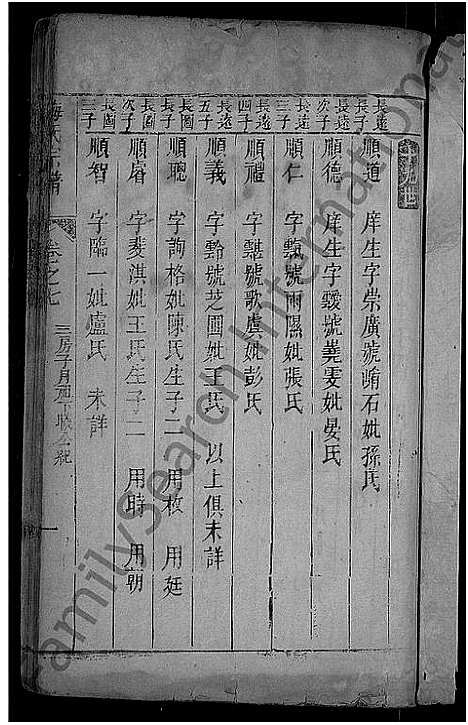 長遠長子 順道 庠生字崇廣號崤石妣孫氏
長遠次子 順德 庠生字靉號堯雯妣晏氏
長遠三子 順仁 字甄號雨隰妣張氏
長遠四子 順禮 字㽎號歌虞妣彭氏
長遠五子 順義 字黔號芝圃妣王氏 以上俱未詳
長圖長子 順聰 字詢格妣陳氏生子二 用枚 用廷
長圖次子 順睿 字斐淇妣王氏生子二 用時 用朝
長圖三子 順智 字臨一妣盧氏 未詳
梅氏宗譜 卷之七 三房子月
FamilySearch International